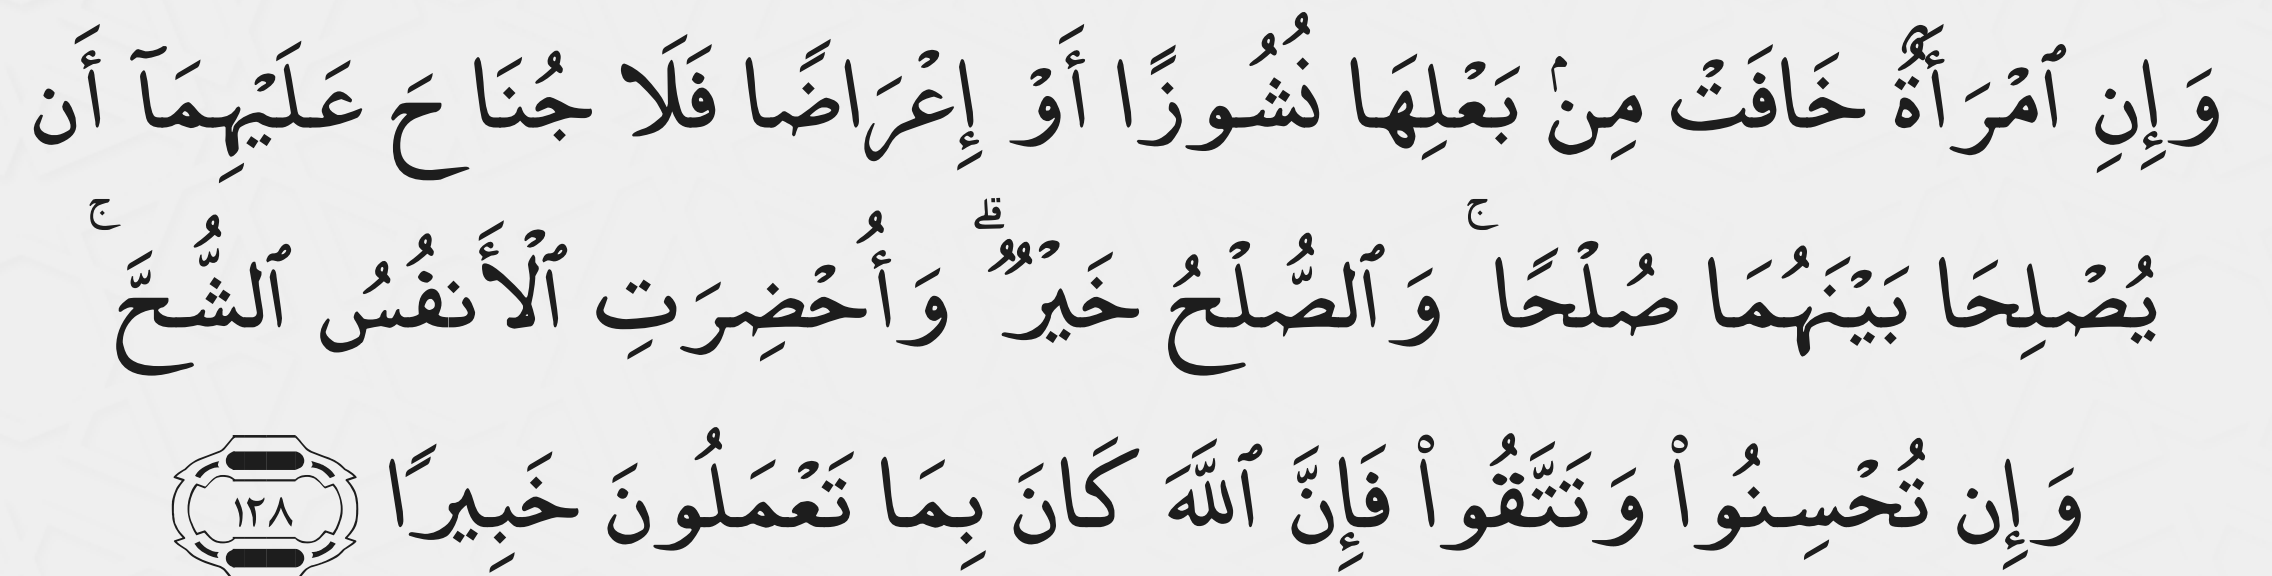 وَإِنِ ٱمْرَأَةٌ خَافَتْ مِنۢ بَعْلِهَا نُشُوزًا أَوْ إِعْرَاضًا فَلَا جُنَاحَ عَلَيْهِمَآ أَن
يُصْلِحَا بَيْنَهُمَا صُلْحًا ۚ وَٱلصُّلْحُ خَيْرٌ ۗ وَأُحْضِرَتِ ٱلْأَنفُسُ ٱلشُّحَّ ۚ
وَإِن تُحْسِنُوا۟ وَتَتَّقُوا۟ فَإِنَّ ٱللَّهَ كَانَ بِمَا تَعْمَلُونَ خَبِيرًا ١٢٨